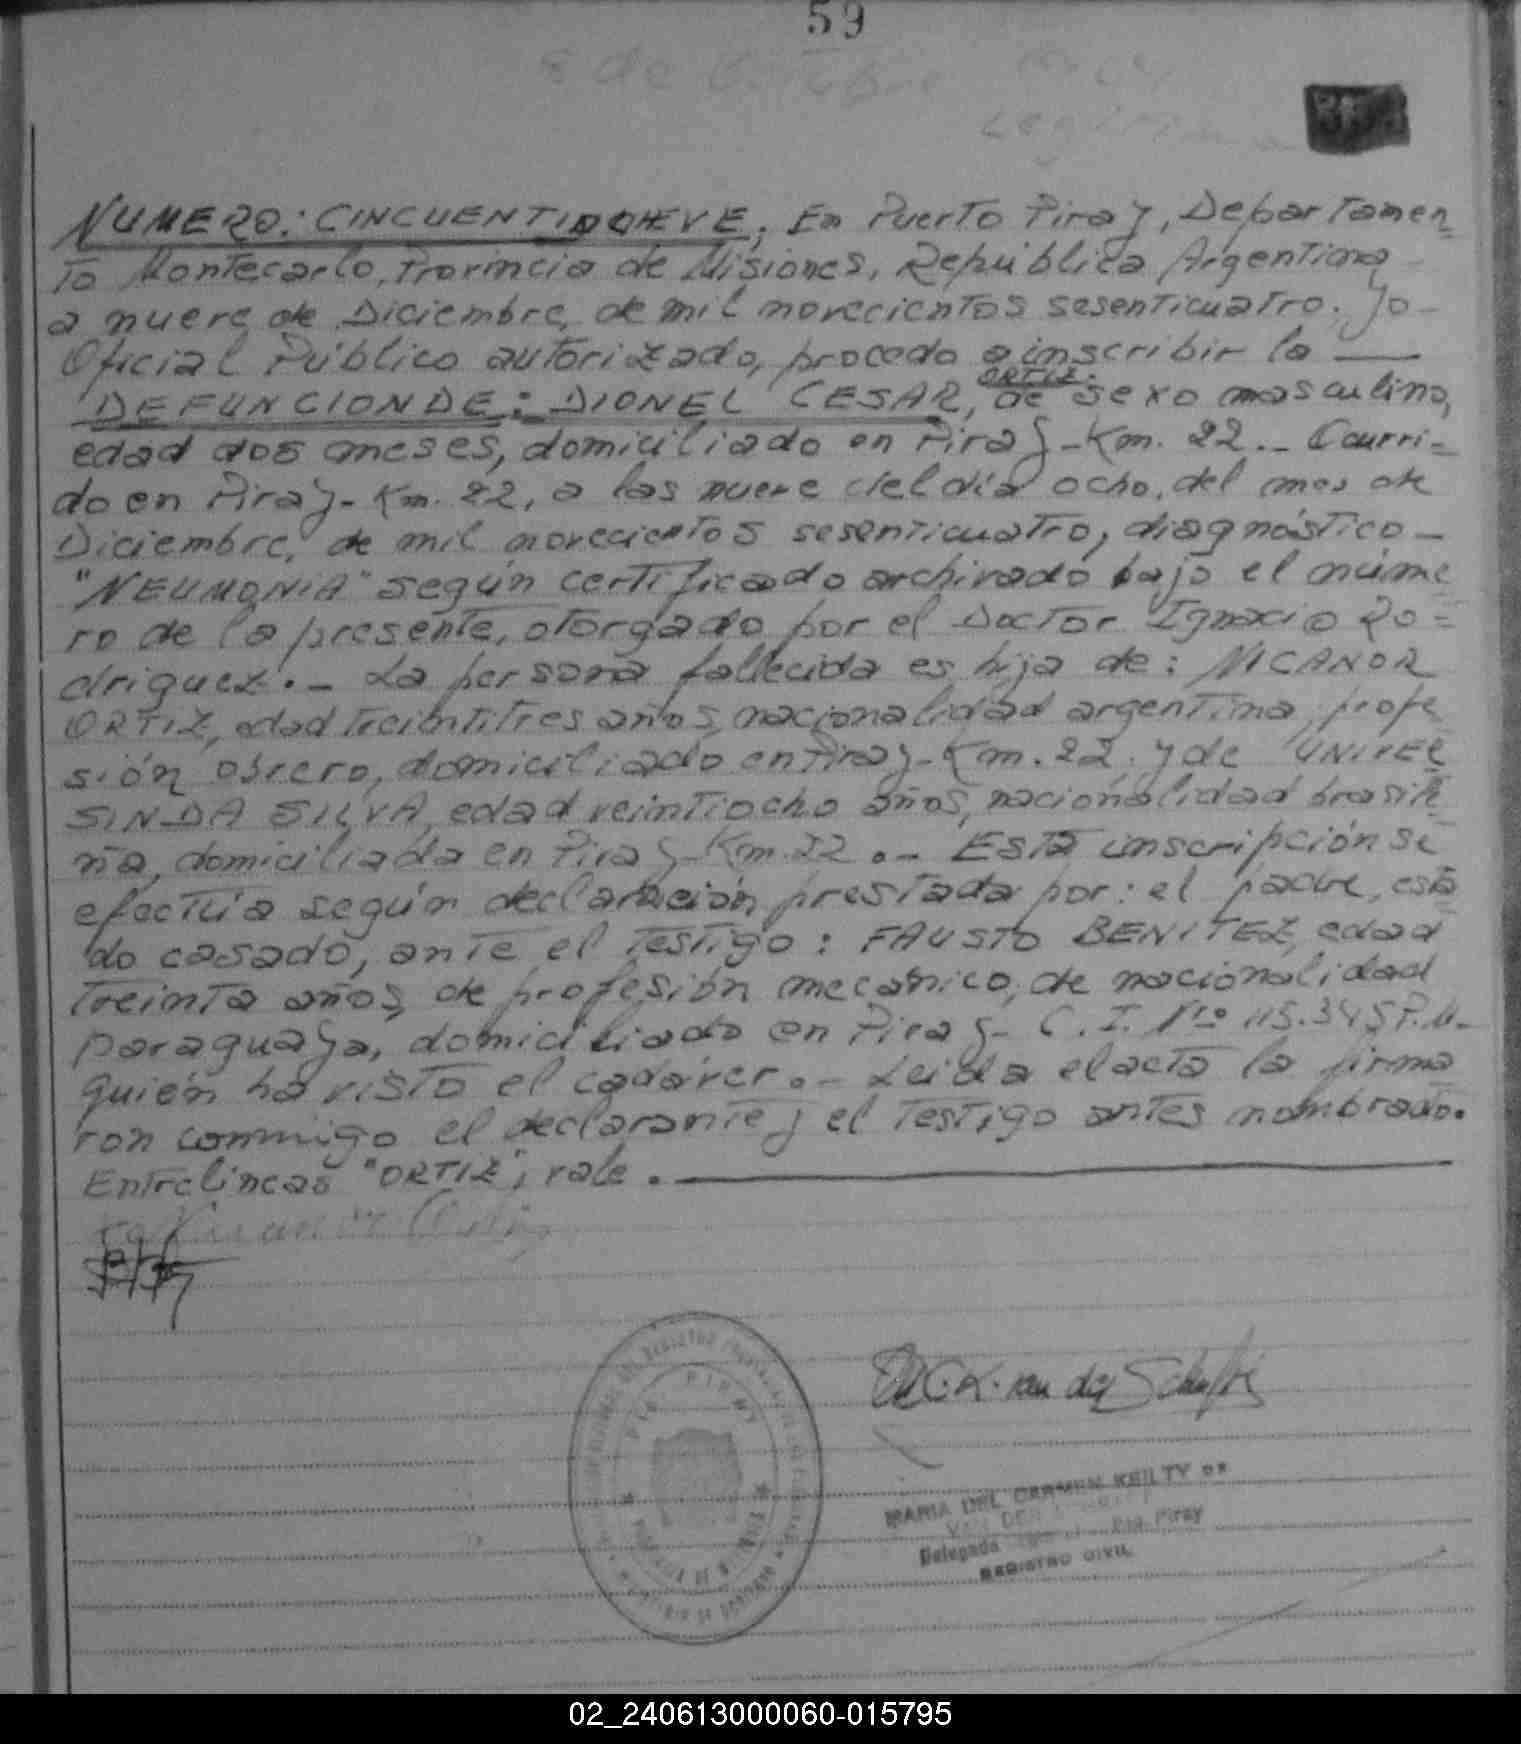 59
8 de
NUMERO: CINCUENTINUEVE; En Puerto Piray, Departamen=
to Montecarlo, Provincia de Misiones, República Argentina
a nueve de Diciembre, de mil novecientos sesenticuatro. Yo-
Oficial Público autorizado, procedo a inscribir la —
ORTIZ.
DEFUNCION DE: DIONEL CESAR, de sexo masculino,
edad dos meses, domiciliado en Piray-Km. 22.- Ocurri=
do en Piray-Km. 22, a las nueve del día ocho, del mes de
Diciembre, de mil novecientos sesenticuatro, diagnóstico-
"NEUMONIA" según certificado archivado bajo el núme
ro de la presente, otorgado por el Doctor Ignacio Ro=
driguez.- La persona fallecida es hija de: NICANOR
ORTIZ, edad treintitres años, nacionalidad argentina, profe
sión obrero, domiciliado en Piray-Km. 22, y de
SINDA SILVA, edad veintiocho años, nacionalidad brasile
ña, domiciliada en Piray-Km. 22.- Esta inscripción se
efectúa según declaración prestada por: el padre, esta
do casado, ante el testigo: FAUSTO BENITEZ, edad
treinta años, de profesión mecánico, de nacionalidad
paraguaya, domiciliado en Piray- C.I. Nº 115.345 P.M.-
quién ha visto el cadáver.- Leida el acta la firma
ron conmigo el declarante y el testigo antes nombrado.
Entrelineas "ORTIZ", vale.
Nicanor Ortiz
PTO PIRAY
MARIA DEL CARMEN KEILTY DE
VAN DER
Delegada Pto Piray
REGISTRO CIVIL
02_240613000060-015795